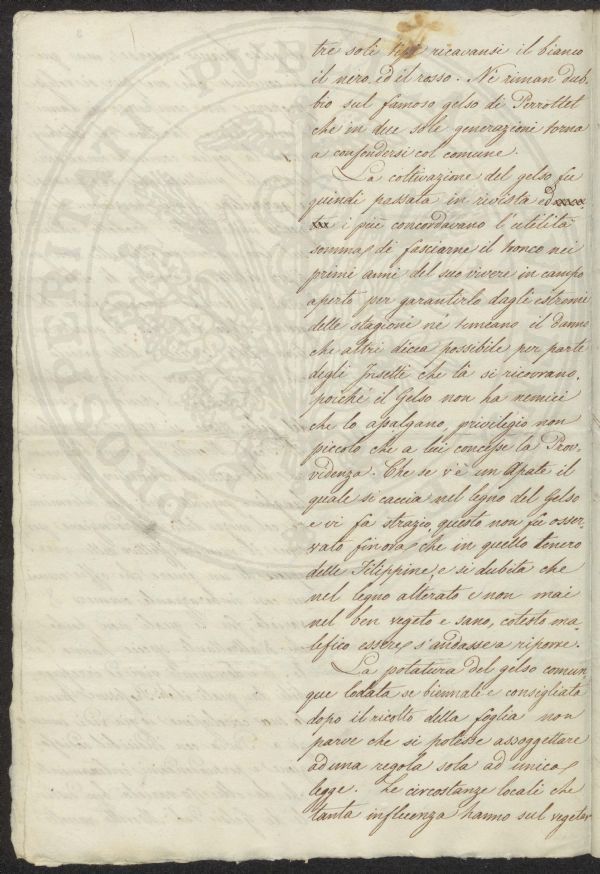 tre soli tipi ricavansi il bianco
il nero, ed il rosso. Nè riman dub,
bio sul famoso gelso di Perrottet
che in due sole generazioni torna
a confondersi col comune.
La coltivazione del gelso fu
quindi passata in rivista ed
i più concordavano l'utilità
somma di fasciarne il tronco nei
primi anni del suo vivere in campo
aperto per garantirlo dagli estremi
delle stagioni nè temeano il danno
che altri dicea possibile per parte
degli Insetti che là si ricovrano,
poichè il Gelso non ha nemici
che lo assalgano, privilegio non
piccolo che a lui concesse la Prov,
videnza. Che se v'è un Apate il
quale si caccia nel legno del Gelso
e vi fa strazio, questo non fu osser,
vato finora che in quello tenero
delle Filippine, e si dubita che
nel legno alterato e non mai
nel ben vegeto e sano, cotesto ma,
lefico essere s'andasse a riporre.
La potatura del gelso comun,
que lodata se biennale e consigliata
dopo il ricolto della foglia non
parve che si potesse assoggettare
ad una regola sola ad unica
legge. Le circostanze locali che
tanta influenza hanno sul vegetar